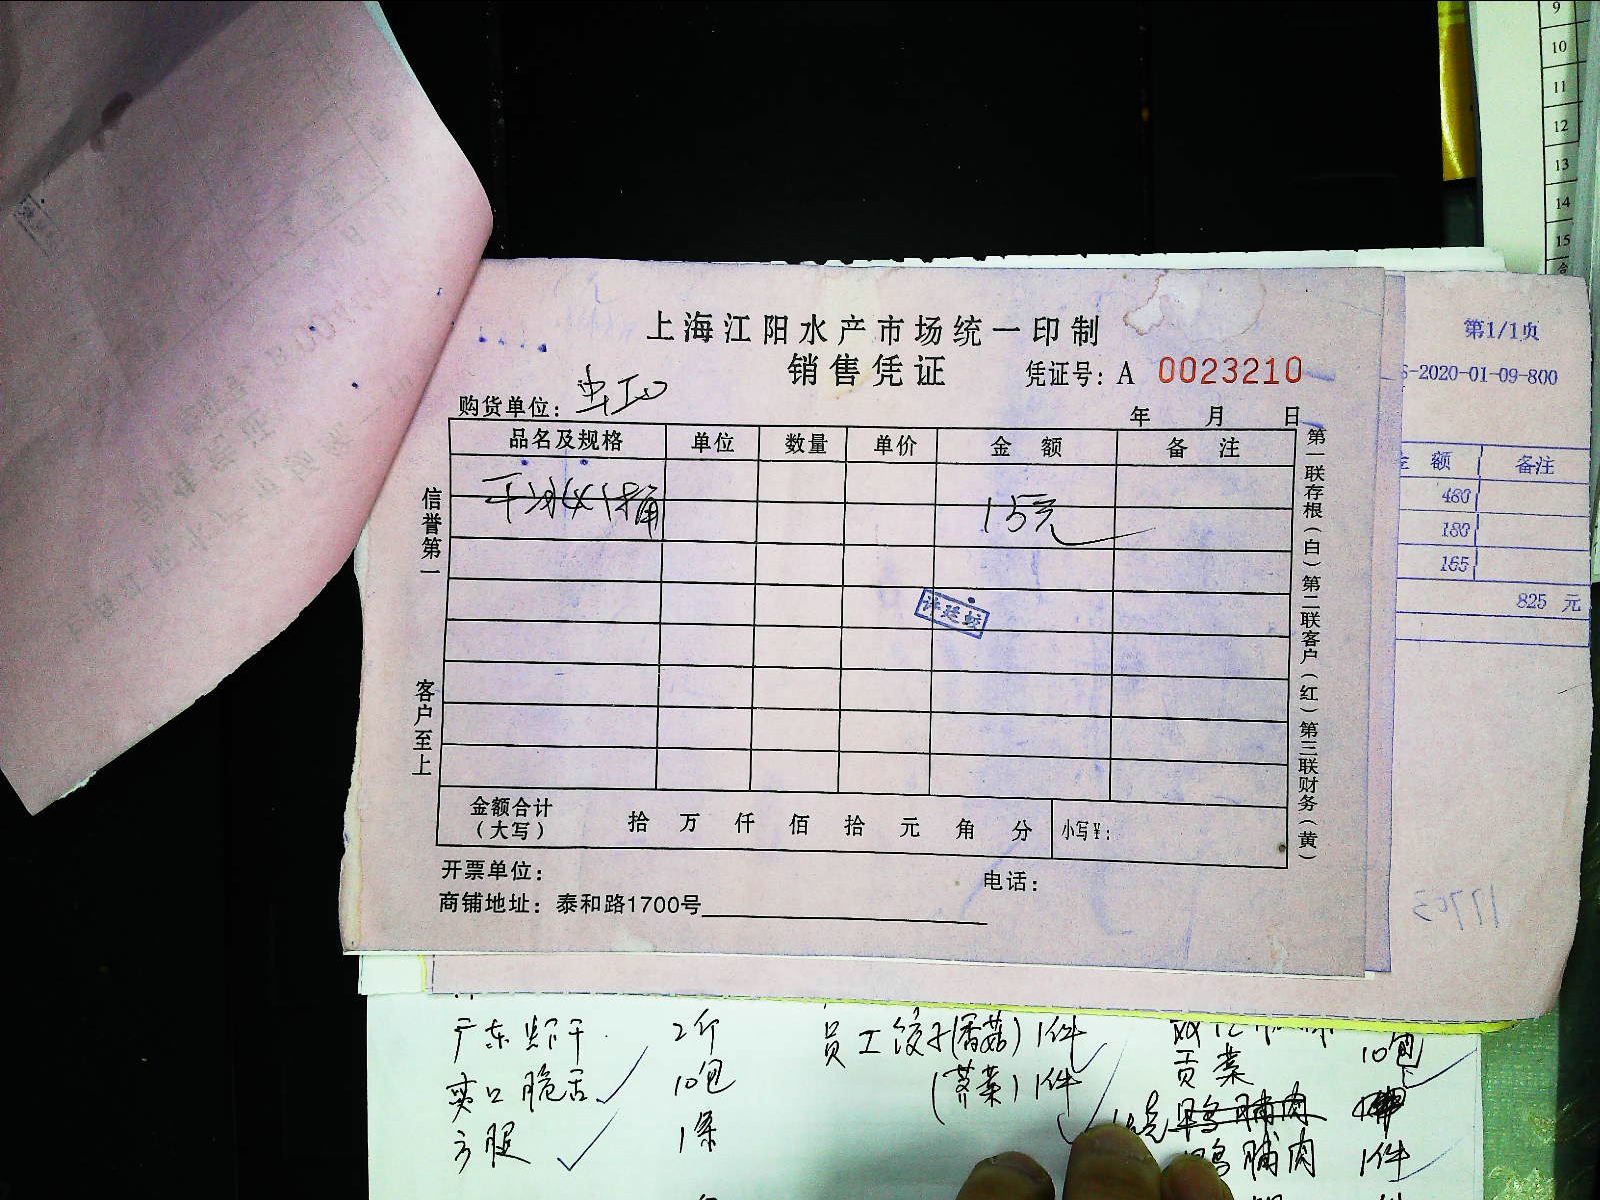 上海江阳水产市场统一印制
销售凭证
凭证号：A 0023210
购货单位：
年 月 日
品名及规格 单位 数量 单价 金 额 备 注
15元
许廷蛟
金额合计（大写） 拾 万 仟 佰 拾 元 角 分 小写¥：
开票单位： 电话：
商铺地址：泰和路1700号
信誉第一
客户至上
第一联存根（白）第二联客户（红）第三联财务（黄）
第1/1页
-2020-01-09-800
额 备注
480
180
165
825 元
9
10
11
12
13
14
15
2斤
爽口脆舌 10包
方腿 1条
员工饺子(香菇) 1件
(荠菜) 1件
贡菜 10包
鸭脯肉 1件